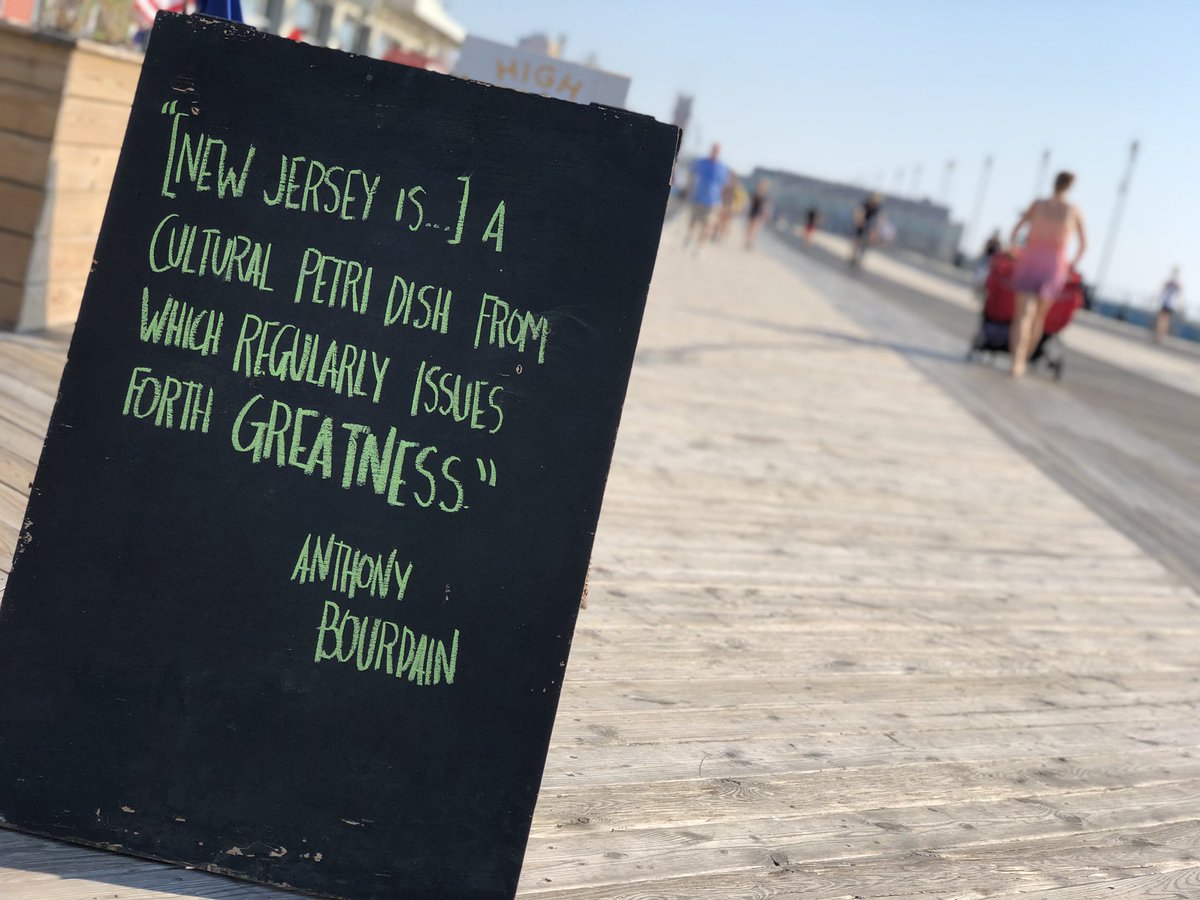 HIGH
"[NEW JERSEY IS...] A
CULTURAL PETRI DISH FROM
WHICH REGULARLY ISSUES
FORTH GREATNESS."
ANTHONY
BOURDAIN